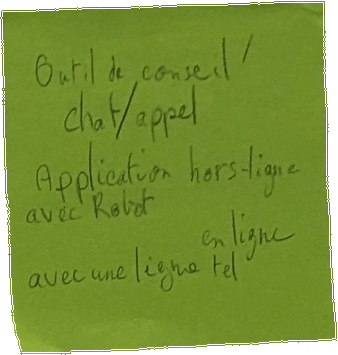 Outil de conseil /
chat/appel
Application hors-ligne
avec Robot
en ligne
avec une ligne tel